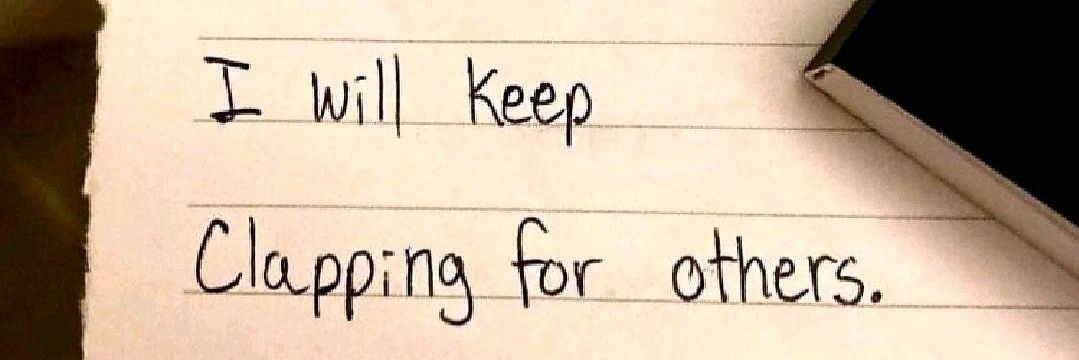 I will keep
Clapping for others.